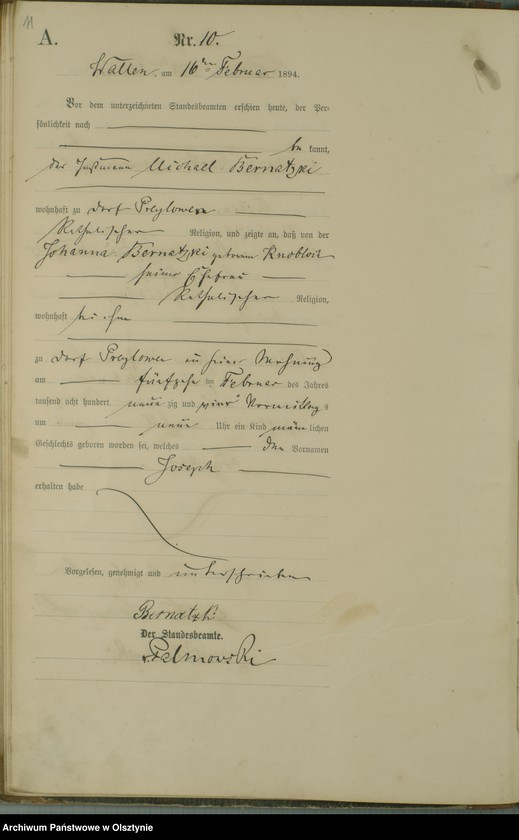 11
A.
Nr. 10.
Wallen am 16ten Februar 1894.
Vor dem unterzeichneten Standesbeamten erschien heute, der Per-
sönlichkeit nach
be kannt,
der Instmann Michael Bernatzki
wohnhaft zu Dorf Preylowen
Katholischer Religion, und zeigte an, daß von der
Johanna Bernatzki geborenen Knobloch
seiner Ehefrau
Katholischer Religion,
wohnhaft bei ihm
zu Dorf Preylowen in seiner Wohnung
am fünfzehn ten Februar des Jahres
tausend acht hundert neun zig und vier Vormittags
um neun Uhr ein Kind männ lichen
Geschlechts geboren worden sei, welches den Vornamen
Joseph
erhalten habe
Vorgelesen, genehmigt und unterschrieben
Bernatzki
Der Standesbeamte.
v. Palmowski
Archiwum Państwowe w Olsztynie